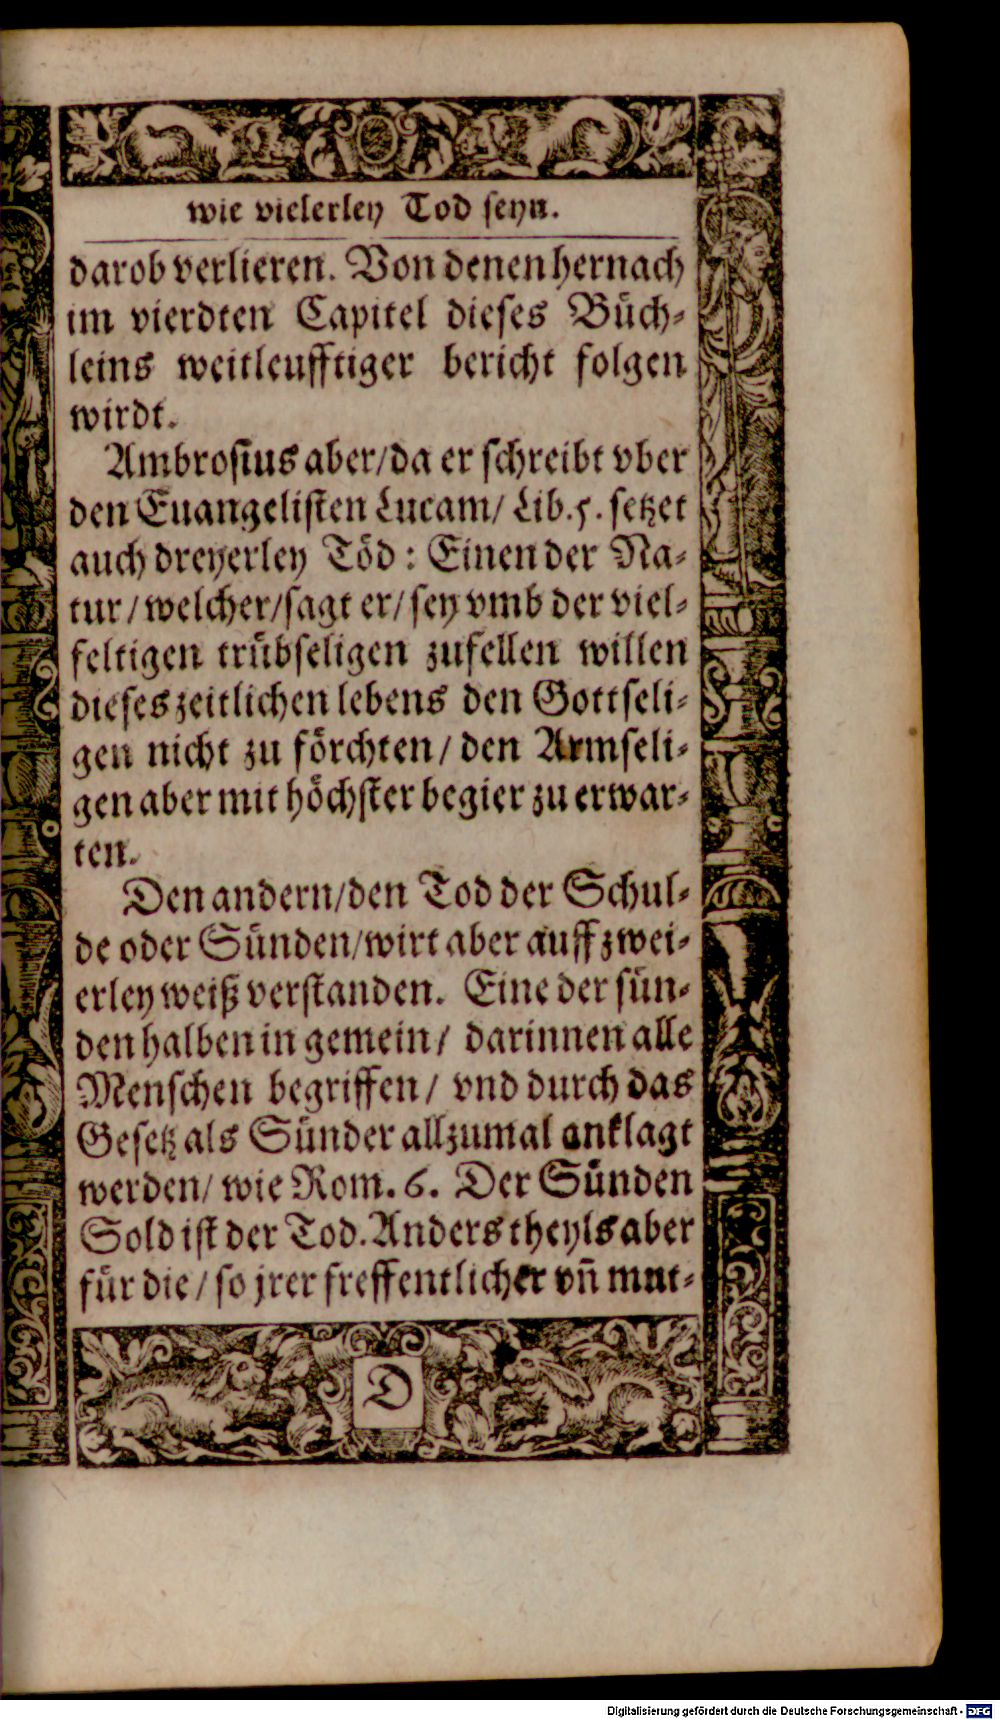 wie vielerley Tod seyn.
darob verlieren. Von denen hernach
im vierdten Capitel dieses Buͤch⸗
leins weitleufftiger bericht folgen
wirdt.
Ambrosius aber/da er schreibt vber
den Euangelisten Lucam/ Lib.5. setzet
auch dreyerley Toͤd : Einen der Na⸗
tur/welcher/sagt er/sey vmb der viel⸗
feltigen truͤbseligen zufellen willen
dieses zeitlichen lebens den Gottseli⸗
gen nicht zu foͤrchten/ den Armseli⸗
gen aber mit hoͤchster begier zu erwar⸗
ten.
Den andern/den Tod der Schul⸗
de oder Suͤnden/wirt aber auff zwei⸗
erley weiß verstanden. Eine der suͤn⸗
den halben in gemein/ darinnen alle
Menschen begriffen/ vnd durch das
Gesetz als Suͤnder allzumal anklagt
werden/ wie Rom. 6. Der Suͤnden
Sold ist der Tod. Anders theyls aber
fuͤr die/ so jrer freffentlicher vn̄ mut⸗
D
Digitalisierung gefördert durch die Deutsche Forschungsgemeinschaft - DFG